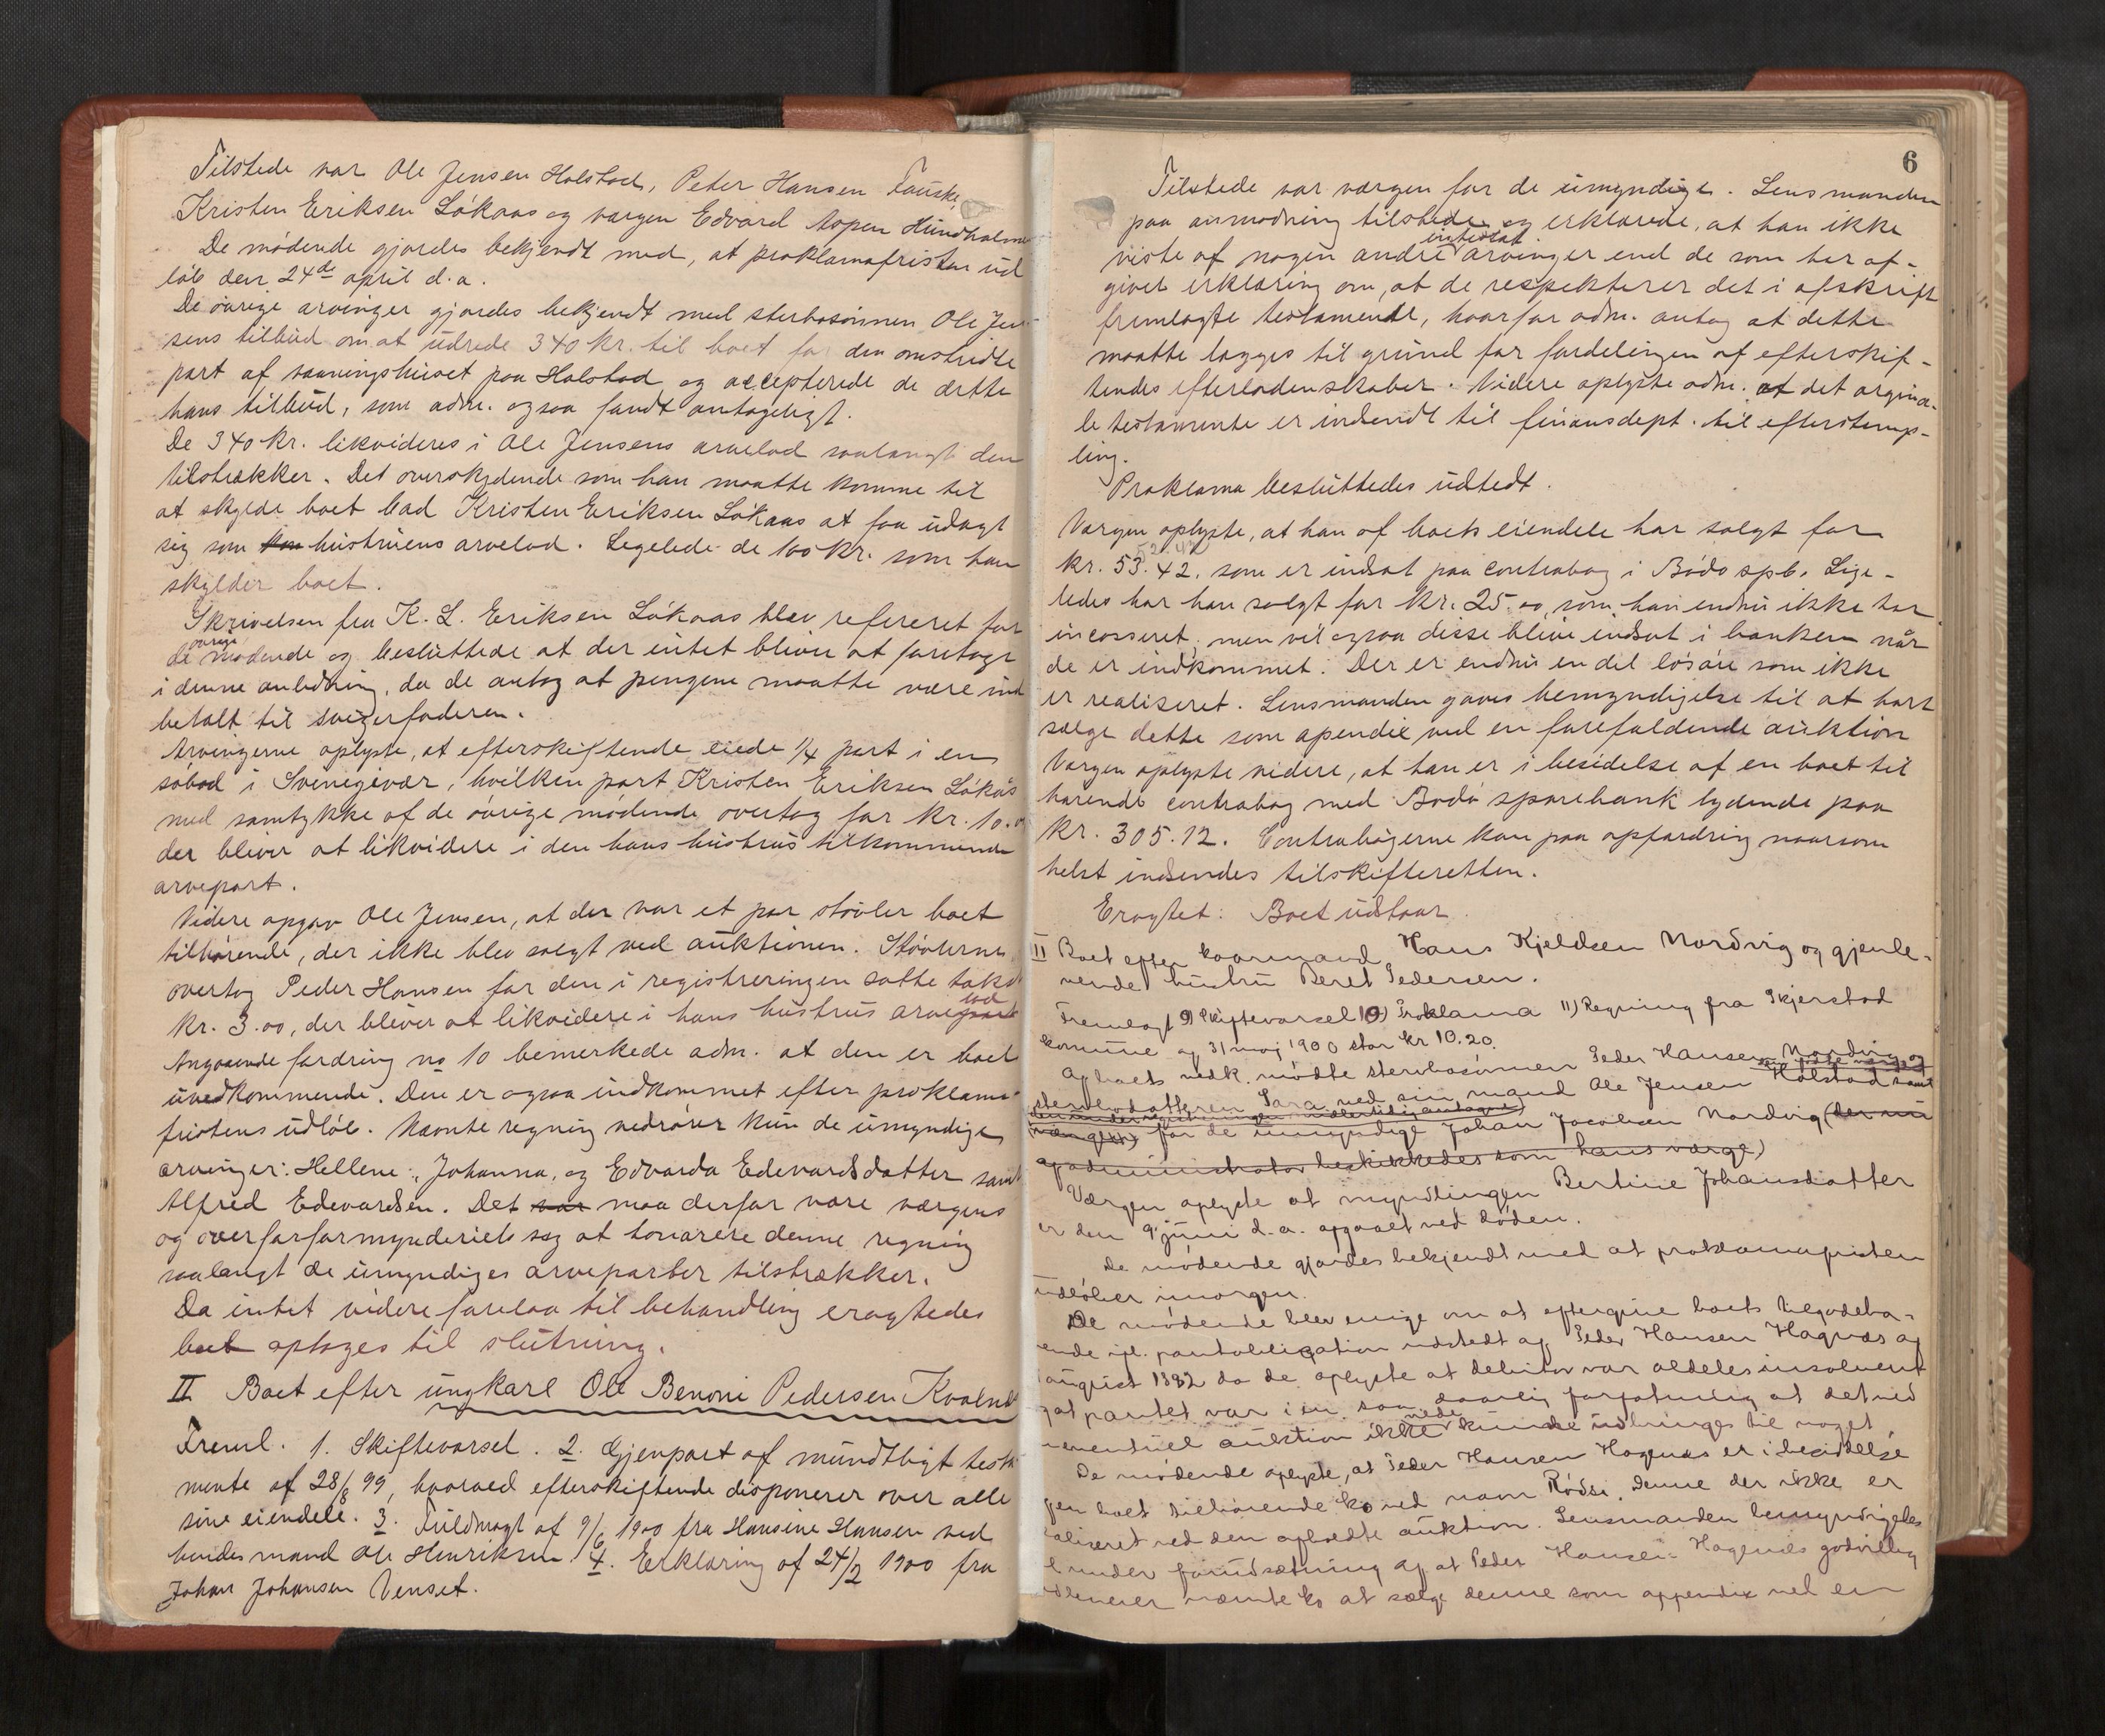 Tilstede var Ole Jensen Holstad, Peter Hansen Fauske,
Kristen Eriksen Løkaas og værgen Edvard Aspen Hundholmen
De mødende gjordes bekjendt med, at proklamafristen ud
løb den 24de april d.a.
De øvrige arvinger gjordes bekjendt med sterbosønnen Ole Jen
sens tilbud om at udrede 340 kr. til boet for den omstridte
part af vaaningshuset paa Holstad og accepterede de dette
hans tilbud, som adm. ogsaa fandt antageligt.
De 340 kr. likvideres i Ole Jensens arvelod saalangt den
tilstrækker. Det overskydende som han maatte komme til
at skylde boet bad Kristen Eriksen Løkaas at faa udlagt
sig som hustruens arvelod. Ligelede de 100 kr. som han
skylder boet.
Skrivelsen fra K. L. Eriksen Løkaas blev refereret for
de øvrige mødende og besluttede at der intet bliver at foretage
i denne anledning, da de antog at pengene maatte være ind
betalt til svigerfaderen.
Arvingerne oplyste, at efterskiftende eiede 1/4 part i en
søbod i Svinegivær, hvilken part Kristen Eriksen Løkås
med samtykke af de øvrige mødende overtog for kr. 10.00
der bliver at likvidere i den hans hustrus tilkommende
arvepart.
Videre opgav Ole Jensen, at der var et par støvler boet
tilhørende, der ikke blev solgt ved auktionen. Støvlerne
overtog Peder Hansen for den i registreringen satte takst
kr. 3.00, der bliver at likvidere i hans hustrus arvelod
Angaaende fordring no 10 bemerkede adm. at den er boet
uvedkommende. Den er ogsaa indkommet efter proklama
fristens udløb. Nævnte regning vedrører kun de umyndige
arvinger: Hellene, Johanna, og Edvarda Edevardsdatter samt
Alfred Edevardsen. Det var maa derfor være værgens
og overformynderiets sag at honorere denne regning
saalangt de umyndiges arveparter tilstrækker.
Da intet videre forelaa til behandling eragtedes
boet optages til slutning.
II Boet efter ungkarl Ole Benoni Pedersen Kvalnes
Freml. 1. Skiftevarsel. 2. Gjenpart af mundtligt testa
mente af 28/8 99, hvorved efterskiftende disponerer over alle
sine eiendele. 3. Fuldmagt af 9/6 1900 fra Hansine Hansen ved
hendes mand Ole Henriksen. 4. Erklæring af 24/2 1900 fra
Johan Johansen Venset.
6
Tilstede var værgen for de umyndige. Lensmanden
paa anmodning tilstede og erklærede, at han ikke
viste af nogen andre intestat arvinger end de som har af-
givet erklæring om, at de respekterer det i afskrift
fremlagte testamente, hvorfor adm. antog at dette
maatte lægges til grund for fordelingen af efterskif-
tendes efterladenskaber. Videre oplyste adm. at det orgina-
le testamente er indsendt til finansdept. til efterstemp-
ling.
Proklama besluttedes udstedt.
Værgen oplyste, at han af boets eiendele har solgt for
kr. 53.42. som er indsat paa contrabog i Bodø spb. Lige-
ledes har han solgt for kr. 25.00, som han endnu ikke har
incasseret, men vil ogsaa disse blive indsat i banken når
de er indkommet. Der er endnu en del løsøre som ikke
er realiseret. Lensmanden gaves bemyndigelse til at bort
sælge dette som apendix ved en forefaldende auktion
Værgen oplyste videre, at han er i besidelse af en boet til
hørende contrabog med Bodø sparebank lydende paa
kr. 305.12. Contrabøgerne kan paa opfordring naarsom
helst indsendes til skifteretten.
Eragtet: Boet udstaar.
II Boet efter kaarmand Hans Kjeldsen Nordvig og gjenle-
vende hustru Beret Pedersen.
Fremlagt 9) Skiftevarsel 10) Proklama 11) Regning fra Skjerstad
komune af 31 maj 1900 stor kr 10.20.
Af boets vedk. mødte sterbosønnen Peder Hansen Nordvig og
sterbodatteren Sara ved sin mand Ole Jensen Holstad samt
værgen for de umyndige Johan Jacobsen Nordvig (der nu
af administrator beskikkedes som hans værge)
Værgen oplyste at myndlingen Bertine Johansdatter
er den 9 juni d.a. afgaaet ved døden.
De mødende gjordes bekjendt med at proklamafristen
udløber imorgen.
De mødende blev enige om at eftergive boets tilgodeha-
vende ifl. pantobligation udstedt af Peder Hansen Hagnæs af
august 1882 da de oplyste at debitor var aldeles insolvent
og at pantet var i en saa daarlig forfatning at det ved
eventuel auktion ikke kunde udbringes til noget
De mødende oplyste, at Peder Hansen Hagenæs er i besiddelse
af en boet tilhørende ko ved navn Rødsi. Denne der ikke er
realiseret ved den afholdte auktion. Lensmanden bemyndigedes
til under forudsætning af at Peder Hansen Hagenæs godvillig
udleverer nævnte ko at sælge denne som appendix ved en